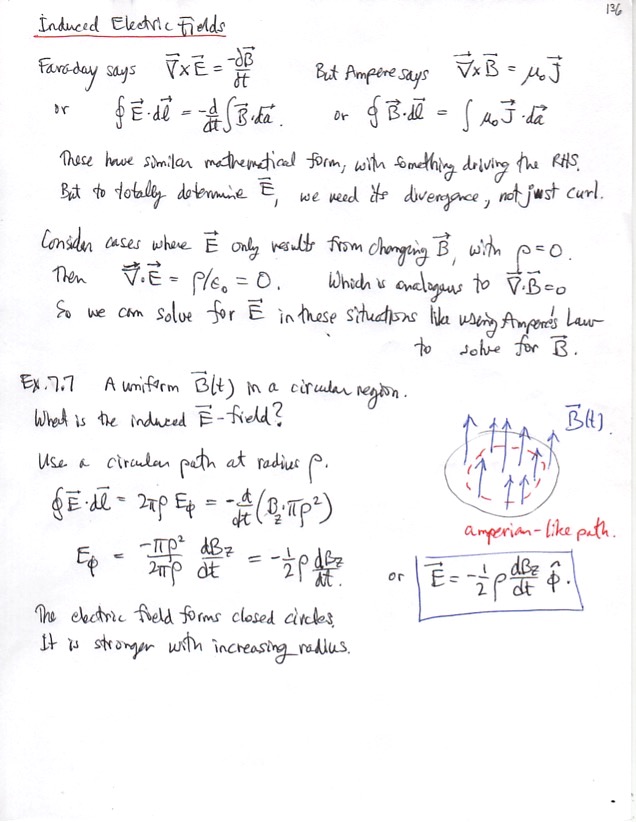 136
Induced Electric Fields
Faraday says ∇⃗×E⃗ = -∂B⃗/∂t But Ampere says ∇⃗×B⃗ = μ₀J⃗
or ∮E⃗·dl⃗ = -d/dt ∫B⃗·da⃗. or ∮B⃗·dl⃗ = ∫μ₀J⃗·da⃗
These have similar mathematical form, with something driving the RHS.
But to totally determine E⃗, we need its divergence, not just curl.
Consider cases where E⃗ only results from changing B⃗, with ρ=0.
Then ∇⃗·E⃗ = ρ/ε₀ = 0. Which is analogous to ∇⃗·B⃗=0
So we can solve for E⃗ in these situations like using Ampere's Law
to solve for B⃗.
Ex. 7.7 A uniform B⃗(t) in a circular region.
What is the induced E⃗-field?
B⃗(t).
Use a circular path at radius ρ.
∮E⃗·dl⃗ = 2πρ E_φ = -d/dt (B_z·πρ²)
amperian-like path.
E_φ = -πρ²/2πρ dB_z/dt = -1/2 ρ dB_z/dt. or E⃗ = -1/2 ρ dB_z/dt φ̂.
The electric field forms closed circles.
It is stronger with increasing radius.